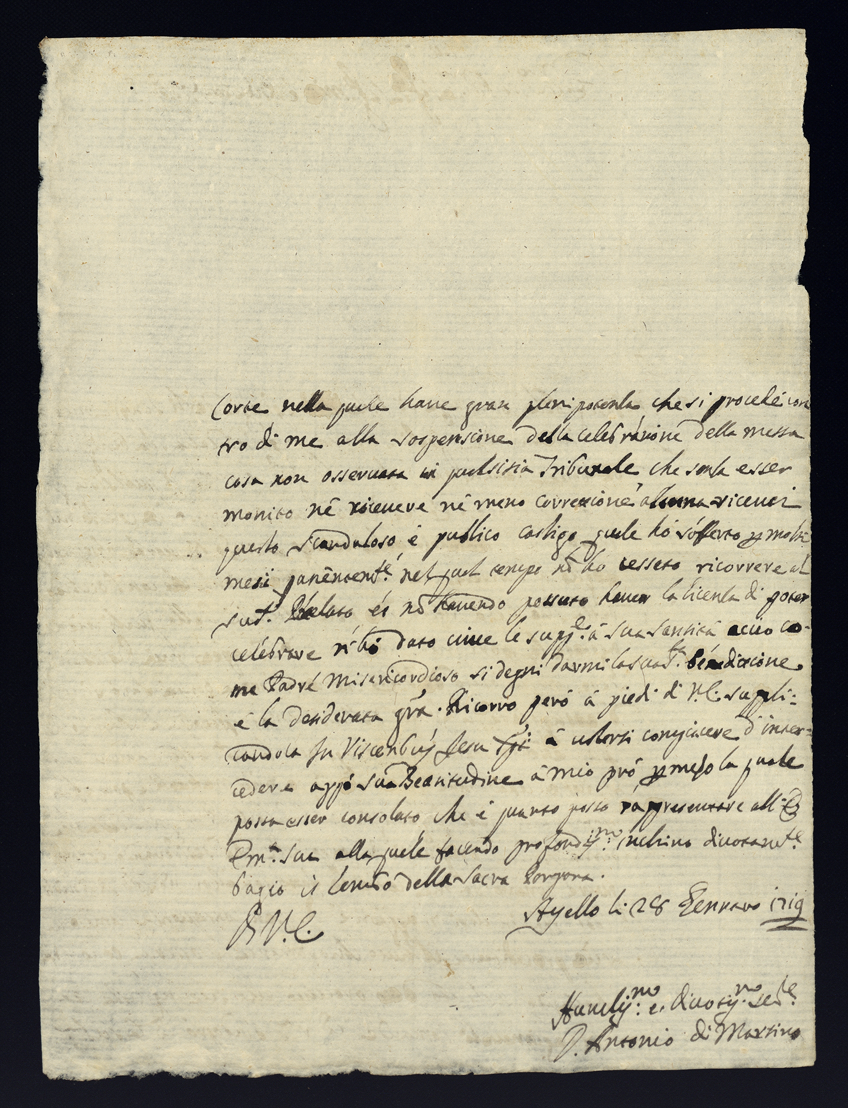 Corte nella quale have gran plenipotenla che si procede con
tro di me alla sospensione della celebratione della messa
cosa non osservata in Tribunale che senza esser
monito ne ricevere ne meno correctione alcuna ricevei
questo scandaloso e publico castigo quale hó sofferto p molti
mesi nel qual tempo nō ho cessato ricorrere al
sud.º Prelato et nō havendo possuto haver la licenla di poter
celebrare dato le supp.e á sua santitá accio co-
me Padre Misericordioso si degni darmi la benedictione
e la desiderata grā. Ricorro peró á piedi di V.E. suppli=
candola In Visceribus Jesu á volersi compiacere d'inter=
cedere appó sua Beatitudine á mio pró p mezo la quale
possa esser consolato che é quanto posso rappresentare all'
Em.ª sua alla quale facendo profondiss.mo inchino divotam.te
bagio il lembo della sacra Porpora.
Ayello li 28 Gennaro 1719
D.V.E.
Humilis.mo e divotis.mo
D. Antonio di Martino